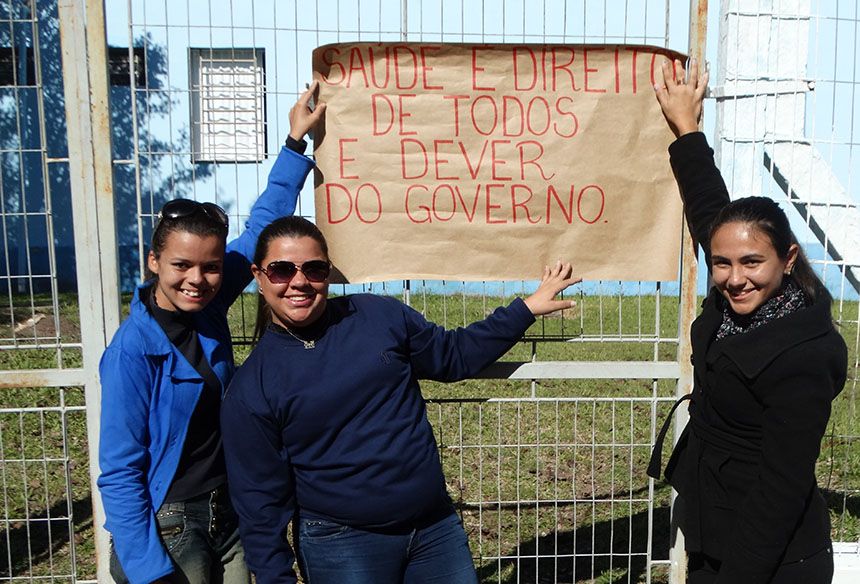 SAÚDE É DIREITO
DE TODOS
E DEVER
DO GOVERNO.